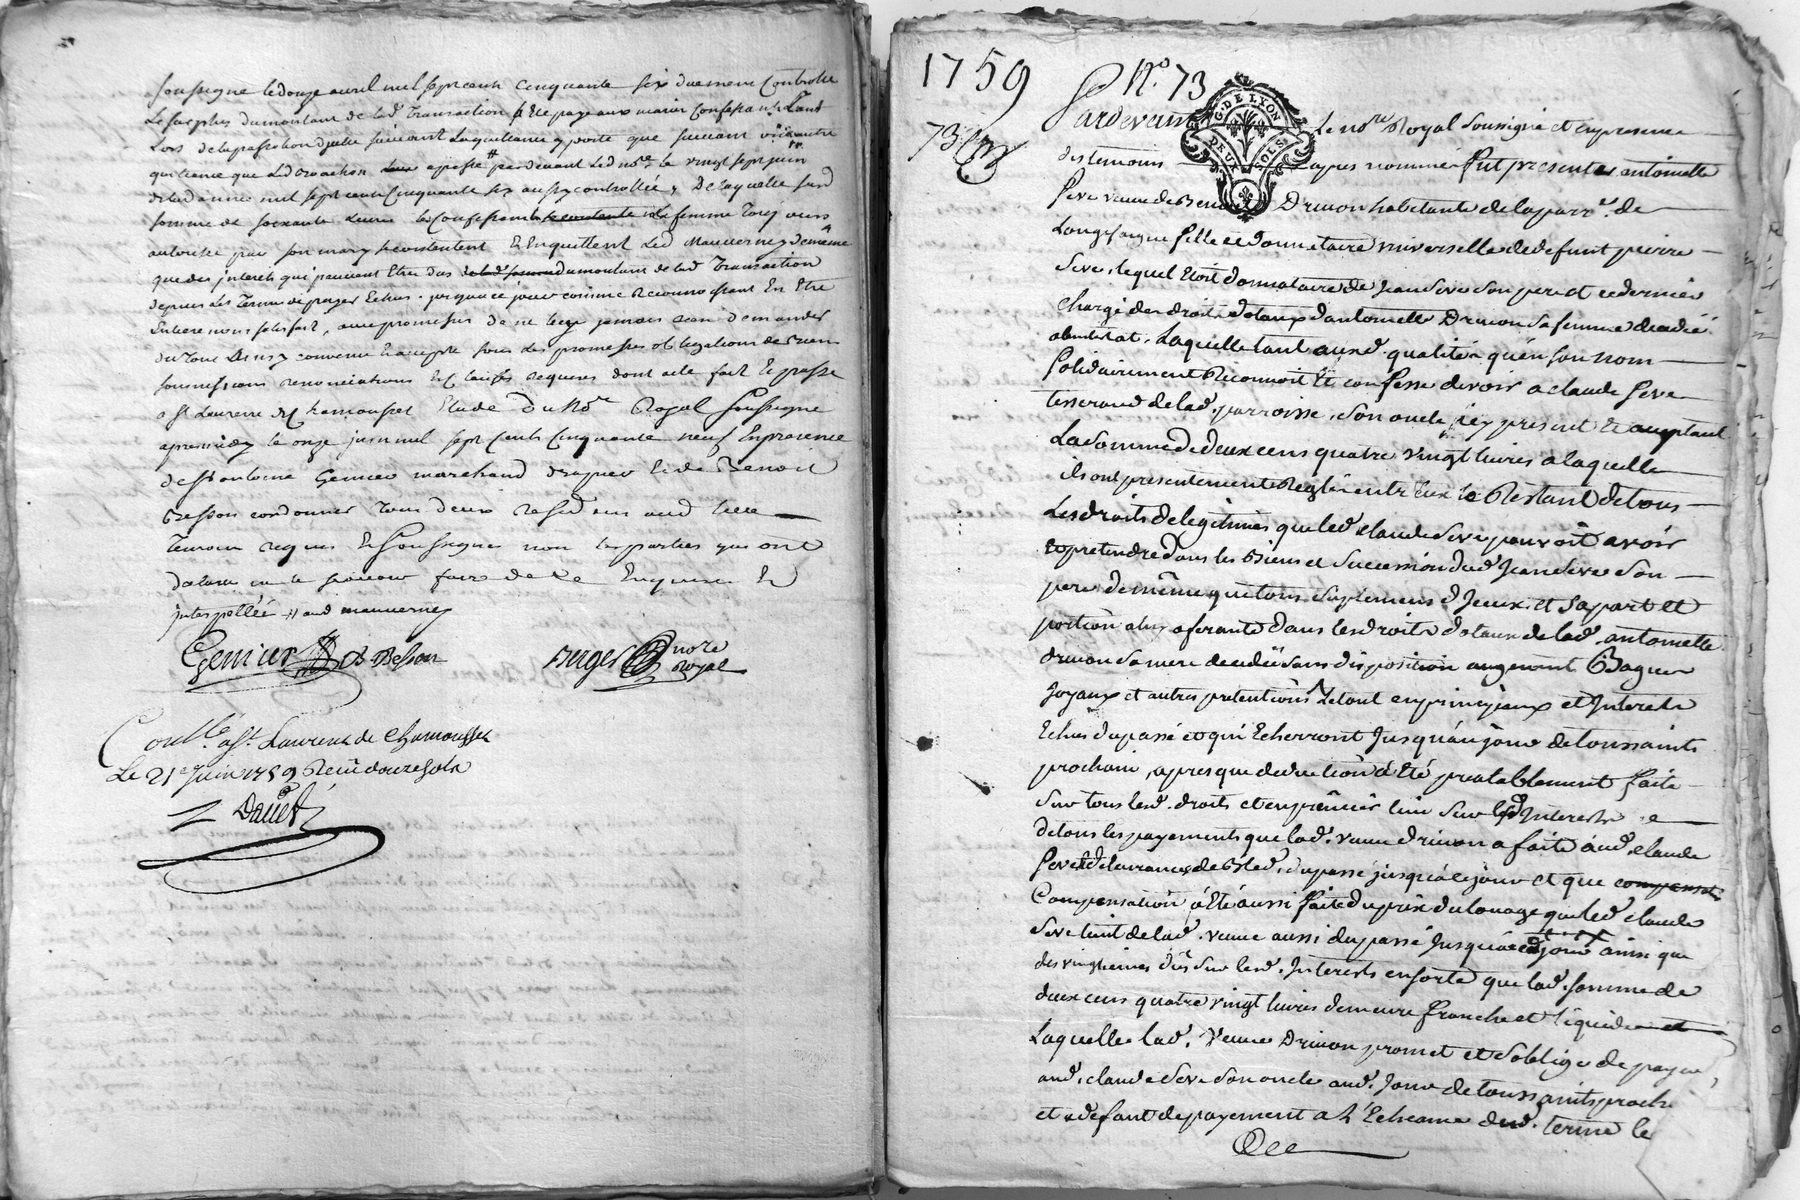 soussigne le douze avril mil sept cent cinquante six duement controllé
Le surplus du montant de lad. Transaction a Eté payé aux mariés Confessants Tant
Lors de la passation d'icelle suivant La quittance y porté que suivant
quittance que Led. passée pardevant Led. nore. le vingt sept juin
de lad. année mil sept cent Cinquante six aussy controllée, De laquelle susd.
somme de soixante Livres les Confessants la femme Toujours
autorisée par son mary se contentent Et Enquittent Led. Mauvernay De même
que des jnterets qui peuvent Etre dus du montant de lad. Transaction
depuis Les Termes de payer Echus jusques a ce jour comme Reconnoissant En Etre
Entierement satisfait, avec promesses de ne leur jamais rien demander
du Tout Ainsy convenu Et accepté sous Les promesses obligations de Biens
soumissions renonciations Et clauses requises dont acte fait Et passé
a St. Laurent de Chamousset Etude Du No.re Royal Soussigné
apres midy le onze juin mil sept Cents Cinquante neuf En presence
de sr. Antoine Genier marchand drapier Et de Benoit
Besson cordonnier Tous deux resid. aud. lieu
Temoins requis Et Soussignés non les parties qui ont
declaré ne le sçavoir faire de ce Enquises Et
jnterpellées // aud mauvernay
Genier B. Besson Berger nore Royal
Contl.é a St. Laurent de Chamousset
Le 21e Juin 1759 Reçu douze sols
Davet
1759 No. 73
73e
G. DE LYON
DEUX SOLS
Pardevant Le No.re Royal Soussigné et en presence
des temoins cy apres nommés fut presente antoinette
Seve veuve de Benoit Drivon habitante de la parr.e de
Longesaigne fille et Donnataire universelle de defunt pierre
Seve, lequel Etoit donnataire de Jean Seve son pere et ce dernier
chargé des droits dotaux d'antoinette Drivon sa femme décédée
abintestat, Laquelle tant aux d. qualités qu'en son nom
solidairement Reconnoit Et confesse devoir a claude Seve
tisserand de lad. parroisse, son oncle jcy present Et acceptant
La Somme de deux cens quatre vingt livres a laquelle
ils ont presentement Reglé entr'Eux le Restant de tous
Les droits de legitimes que led. claude Seve pouvoit avoir
et pretendre dans les Biens et Succession dud. Jean Seve Son
pere de même que tous suplemens d'jceux et sa part et
portion aluy aferante dans les droits dotaux de lad. antoinette
drivon sa mere decedée sans disposition augment Bagues
joyaux et autres pretentions Le tout en principaux et Interests
Echus du passé et qui Echerront Jusqu'au jour de toussaints
prochain, apres que deduction a Eté prealablement faite
sur tous lesd. droits et en premier lieu sur lesd. Interests
de tous les payements que lad. veuve drivon a faits aud. claude
Seve Et delivrances de Bled, du passé jusqu'a ce jour et que compensat
Compensation a Eté aussi faite du prix du louage que led. claude
Seve tient de lad. veuve aussi du passé Jusqu'a ced. jour ainsi que
des vingtiemes dûs sur lesd. Interests en sorte que lad. somme de
deux cens quatre vingt livres demeure franche et liquide et
Laquelle lad. Veuve Drivon promet et s'oblige de payer
aud. claude Seve son oncle aud. Jour de toussaints prochain
et a defaut de payement a l'Echeance dud. terme le